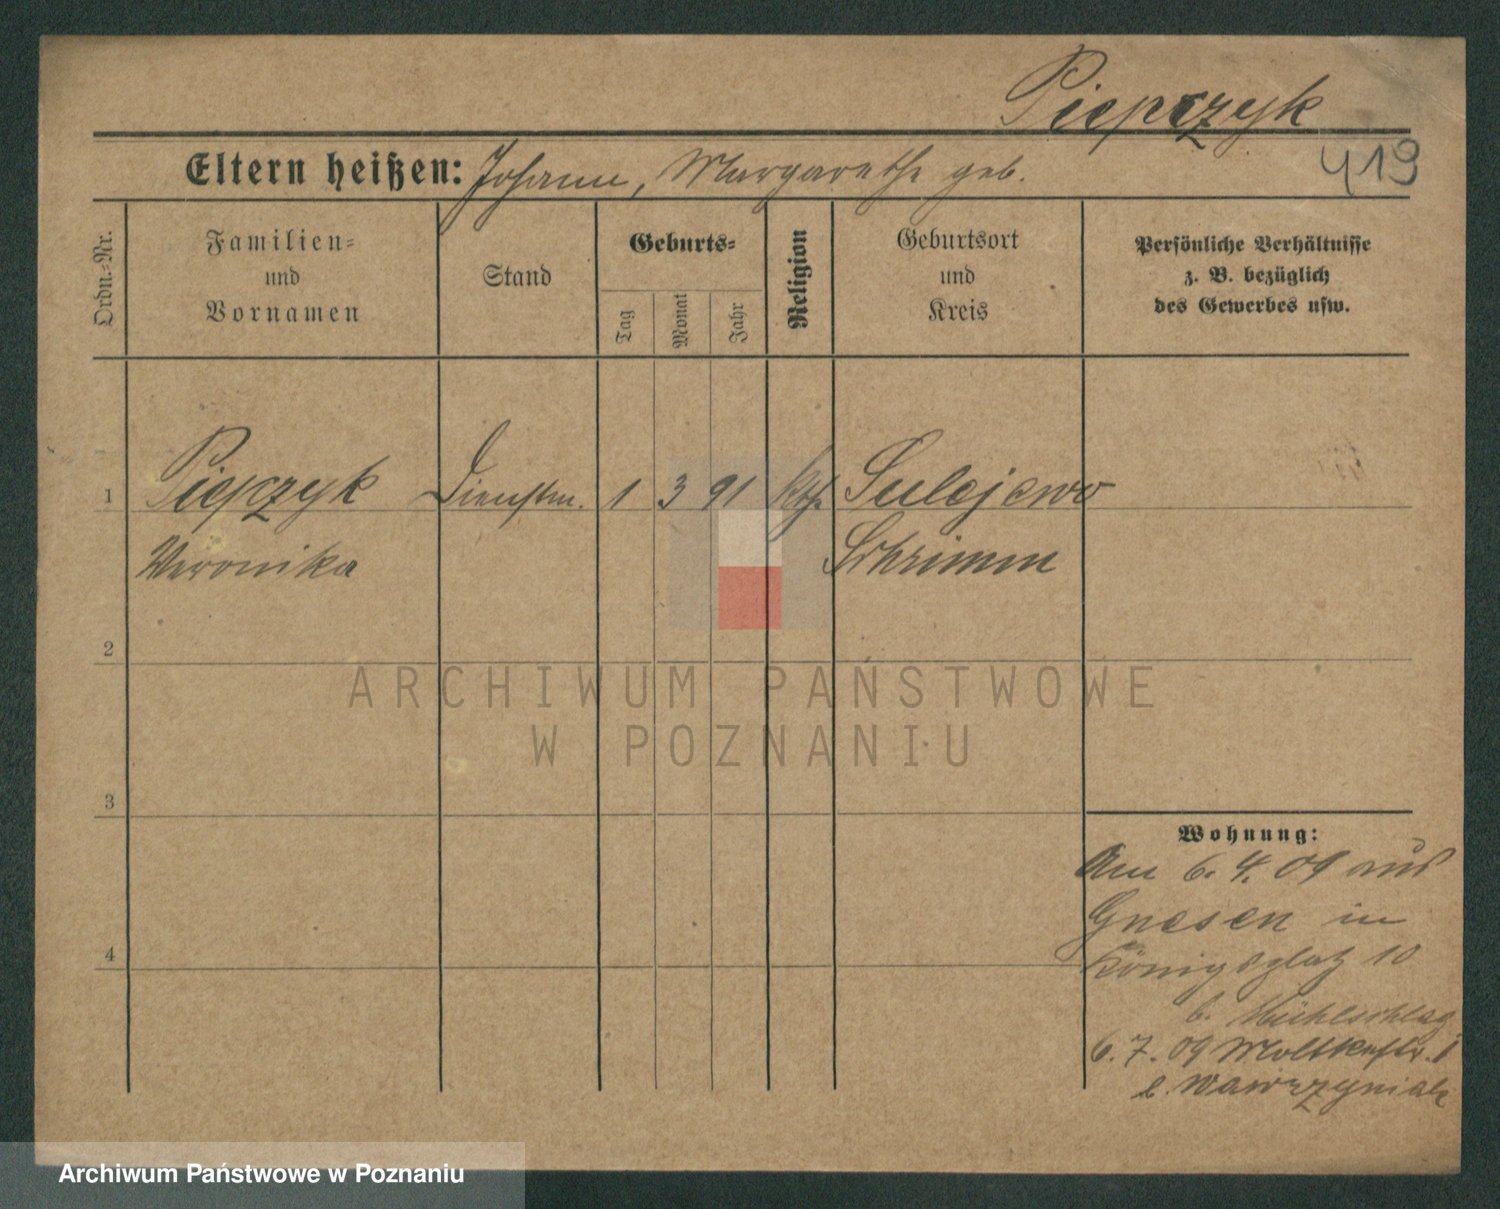 Piepczyk
419
Eltern heißen: Johann, Margarethe geb.
Ordn.-Nr.
Familien-
und
Vornamen
Stand
Geburts-
Tag
Monat
Jahr
Religion
Geburtsort
und
Kreis
Persönliche Verhältnisse
z. B. bezüglich
des Gewerbes usw.
1 Piepczyk Dienstm. 1 3 91 kth. Sulejewo
Veronika Schrimm
2
3
4
ARCHIWUM PAŃSTWOWE
W POZNANIU
Wohnung:
Am 6. 4. 09 aus
Gnesen in
Königsplatz 10
b. Mühlschlag
6. 7. 09 Moltkestr.
b. Wawrzyniak
Archiwum Państwowe w Poznaniu